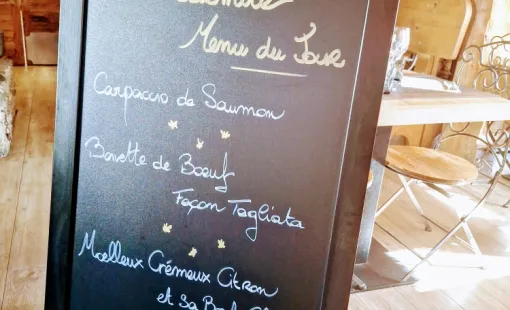 Menu du Jour
Carpaccio de Saumon
Bavette de Bœuf
Façon Tagliata
Moelleux Crémeux Citron
et sa